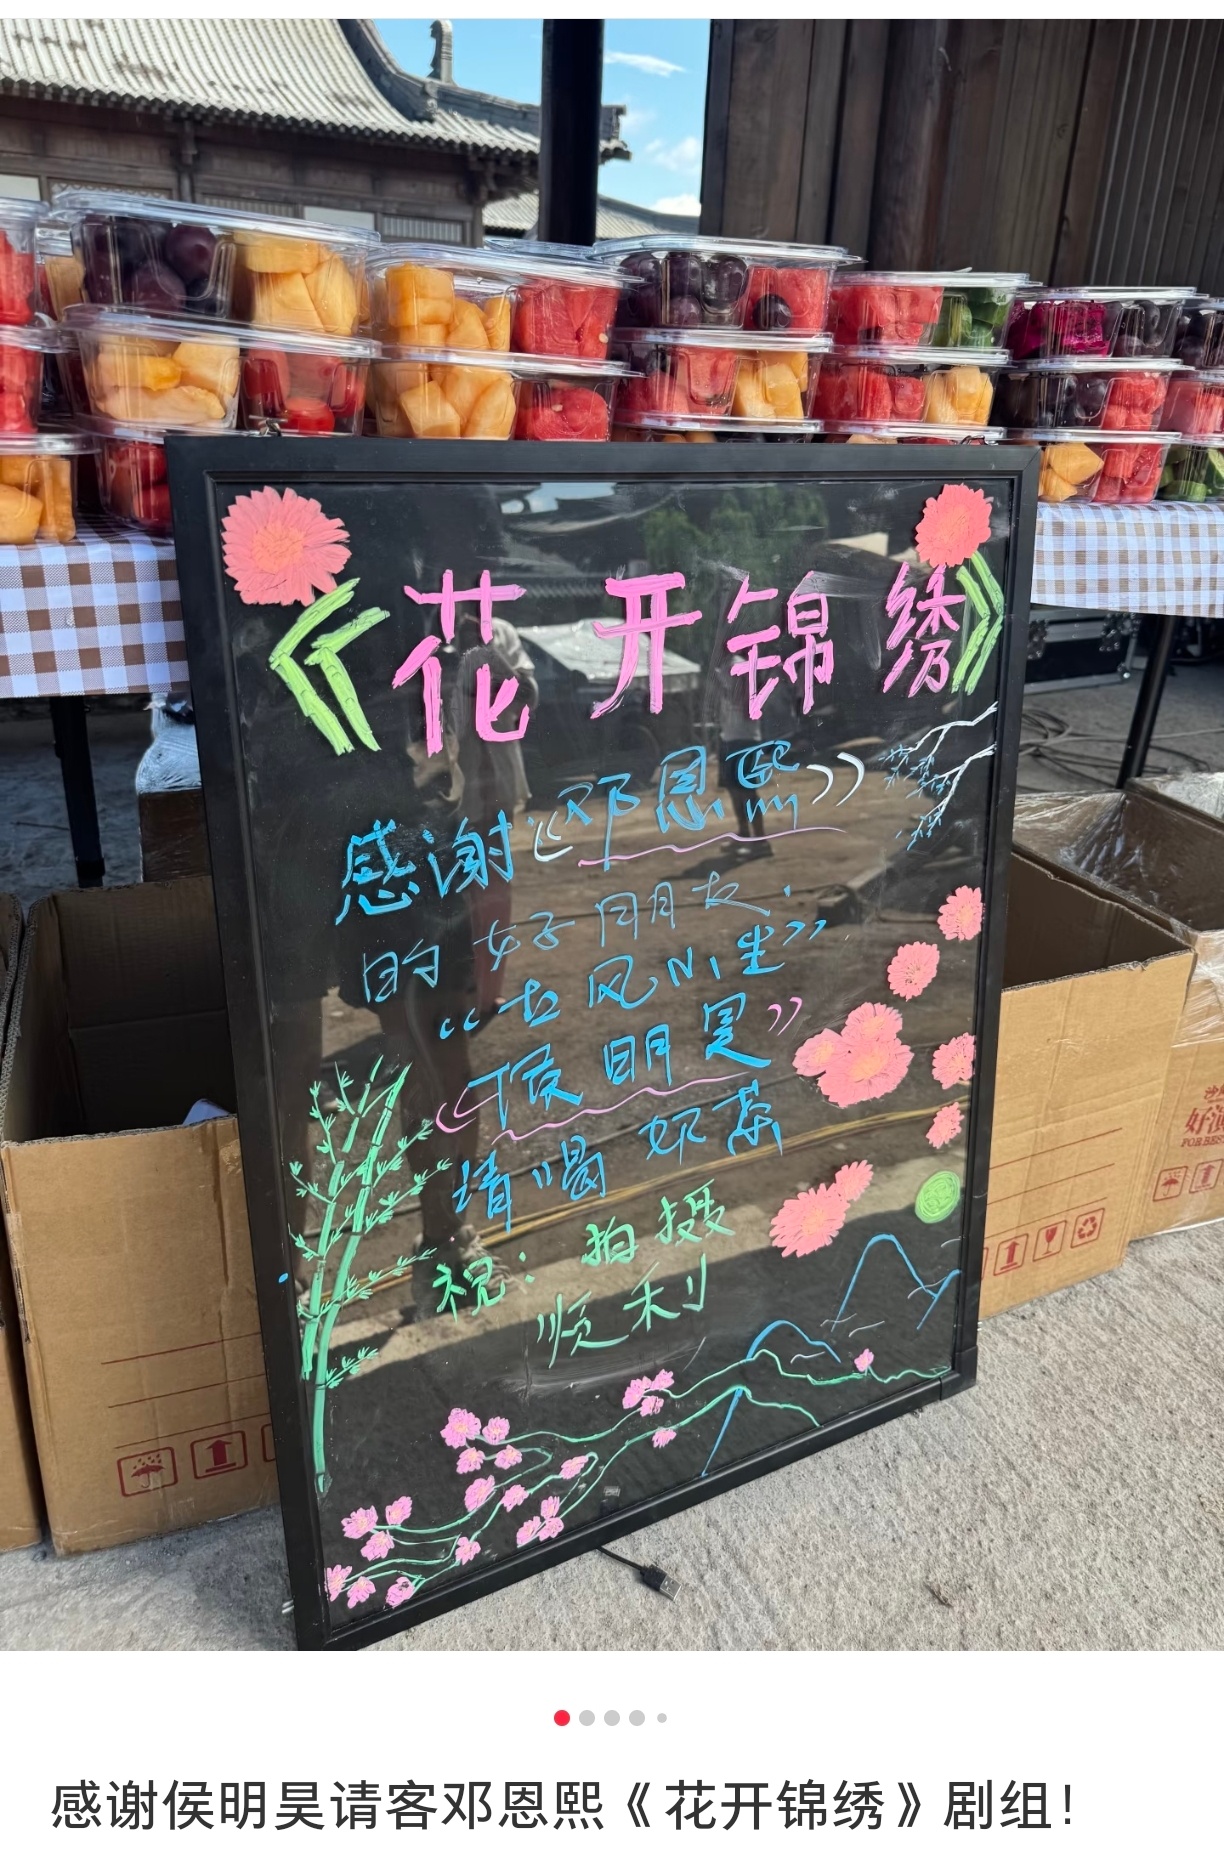 《花开锦绣》
感谢《邓恩熙》
的好闺朋友:
“古风小生”
《侯明昊》
请喝奶茶
祝:拍摄
顺利
好演
FOR BES
感谢侯明昊请客邓恩熙《花开锦绣》剧组!